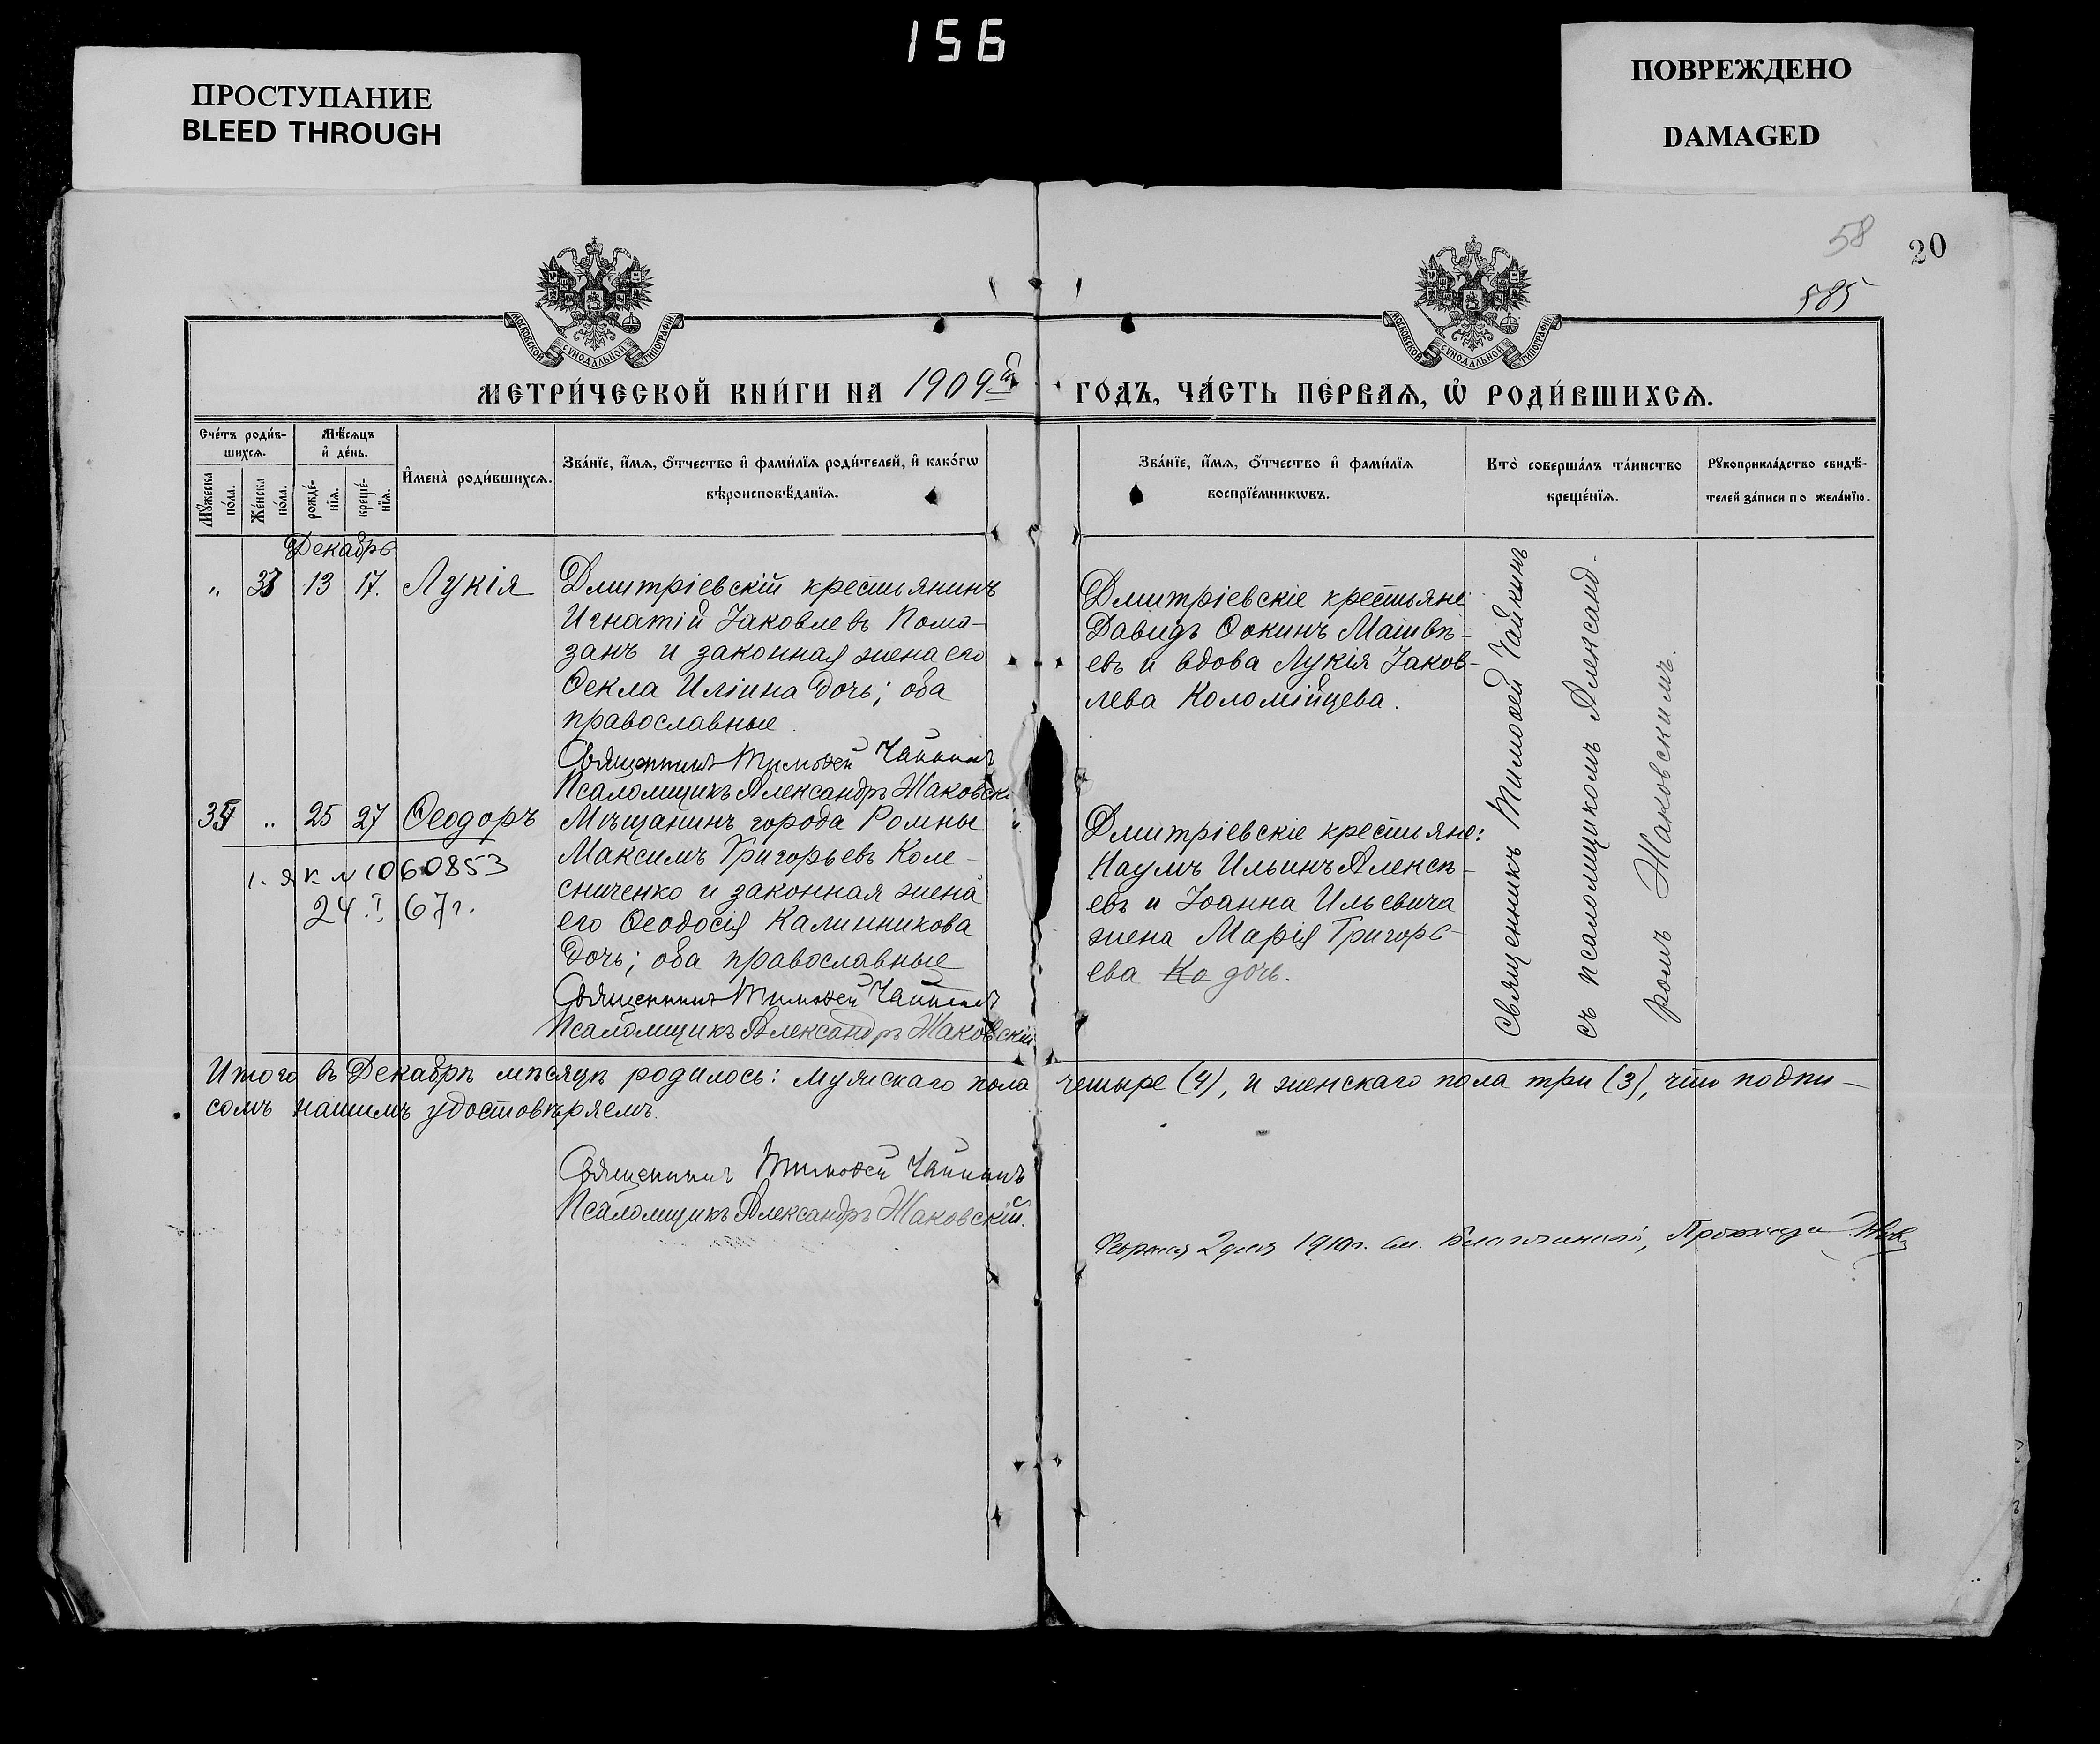 156
ПРОСТУПАНИЕ
BLEED THROUGH
ПОВРЕЖДЕНО
DAMAGED
58
20
585
МОСКОВСКОЙ СУНОДАЛЬНОЙ ТИПОГРАФІИ
МОСКОВСКОЙ СУНОДАЛЬНОЙ ТИПОГРАФІИ
МЕТРИ́ЧЕСКОЙ КНИ́ГИ НА 1909й
ГО́ДЪ, ЧА́СТЬ ПЕ́РВАѦ, Ѡ҆ РОДИ́ВШИХСѦ.
Сче́тъ роди́в-
шихсѧ.
Мꙋ́жеска по́ла.
Же́нска по́ла.
Мѣ́сѧцъ
и҆ де́нь.
рожде́-
нїѧ.
креще́-
нїѧ.
И҆мена̀ роди́вшихсѧ.
Зва́нїе, и҆́мѧ, ѻ҆́тчество и҆ фами́лїѧ роди́телей, и҆ како́гѡ
вѣроисповѣ́данїѧ.
Зва́нїе, и҆́мѧ, ѻ҆́тчество и҆ фами́лїѧ
воспрїе́мникѡвъ.
Кто̀ соверша́лъ та́инство
креще́нїѧ.
Рꙋкоприкла́дство свидѣ́-
телей за́писи по жела́нїю.
Декабрь
„ 13 17. Лукія
Дмитріевскій крестьянинъ
Игнатій Іаковлевъ Пома-
занъ и законная жена его
Ѳекла Иліина дочь; оба
православные.
Священникъ Тимоѳей Чайкинъ
Псаломщикъ Александръ Жаковскі
Дмитріевскіе крестьяне
Давидъ Ѳокинъ Матвѣ-
евъ и вдова Лукія Іаков-
лева Коломійцева.
Священникъ Тимоѳей Чайкинъ
съ псаломщикомъ Александ-
ромъ Жаковскимъ.
„ 25 27 Ѳеодоръ
Мѣщанинъ города Ромны
Максимъ Григорьевъ Коле-
сниченко и законная жена
его Ѳеодосія Калинникова
дочь; оба православные
Священникъ Тимоѳей Чайкинъ
Псаломщикъ Александръ Жаковскій
1060853
67г.
Дмитріевскіе крестьяне:
Наумъ Ильинъ Алексѣ-
евъ и Іоанна Ильевича
жена Марія Григорь-
ева Ко дочь.
Итого въ Декабрѣ мѣсяцѣ родилось: мужскаго пола четыре (4), и женскаго пола три (3), что подпи-
сомъ нашимъ удостовѣряемъ.
Священникъ Тимоѳей Чайкинъ
Псаломщикъ Александръ Жаковскій.
2 дня 1910г.